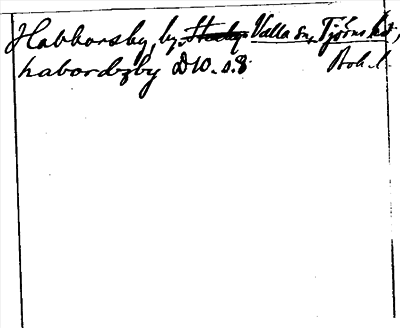 Habborsby, by, Valla sn, Tjörns hd,
habordzby D10. s. 8 Boh. l.